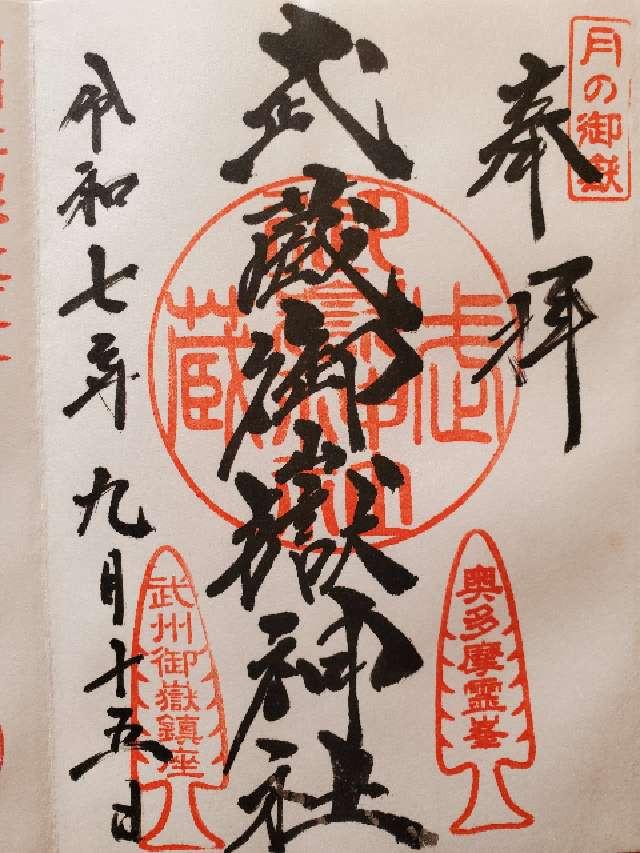 月の御嶽
奉拝
武蔵御嶽神社
武蔵
奥多摩霊峯
武州御嶽鎮座
令和七年九月十五日